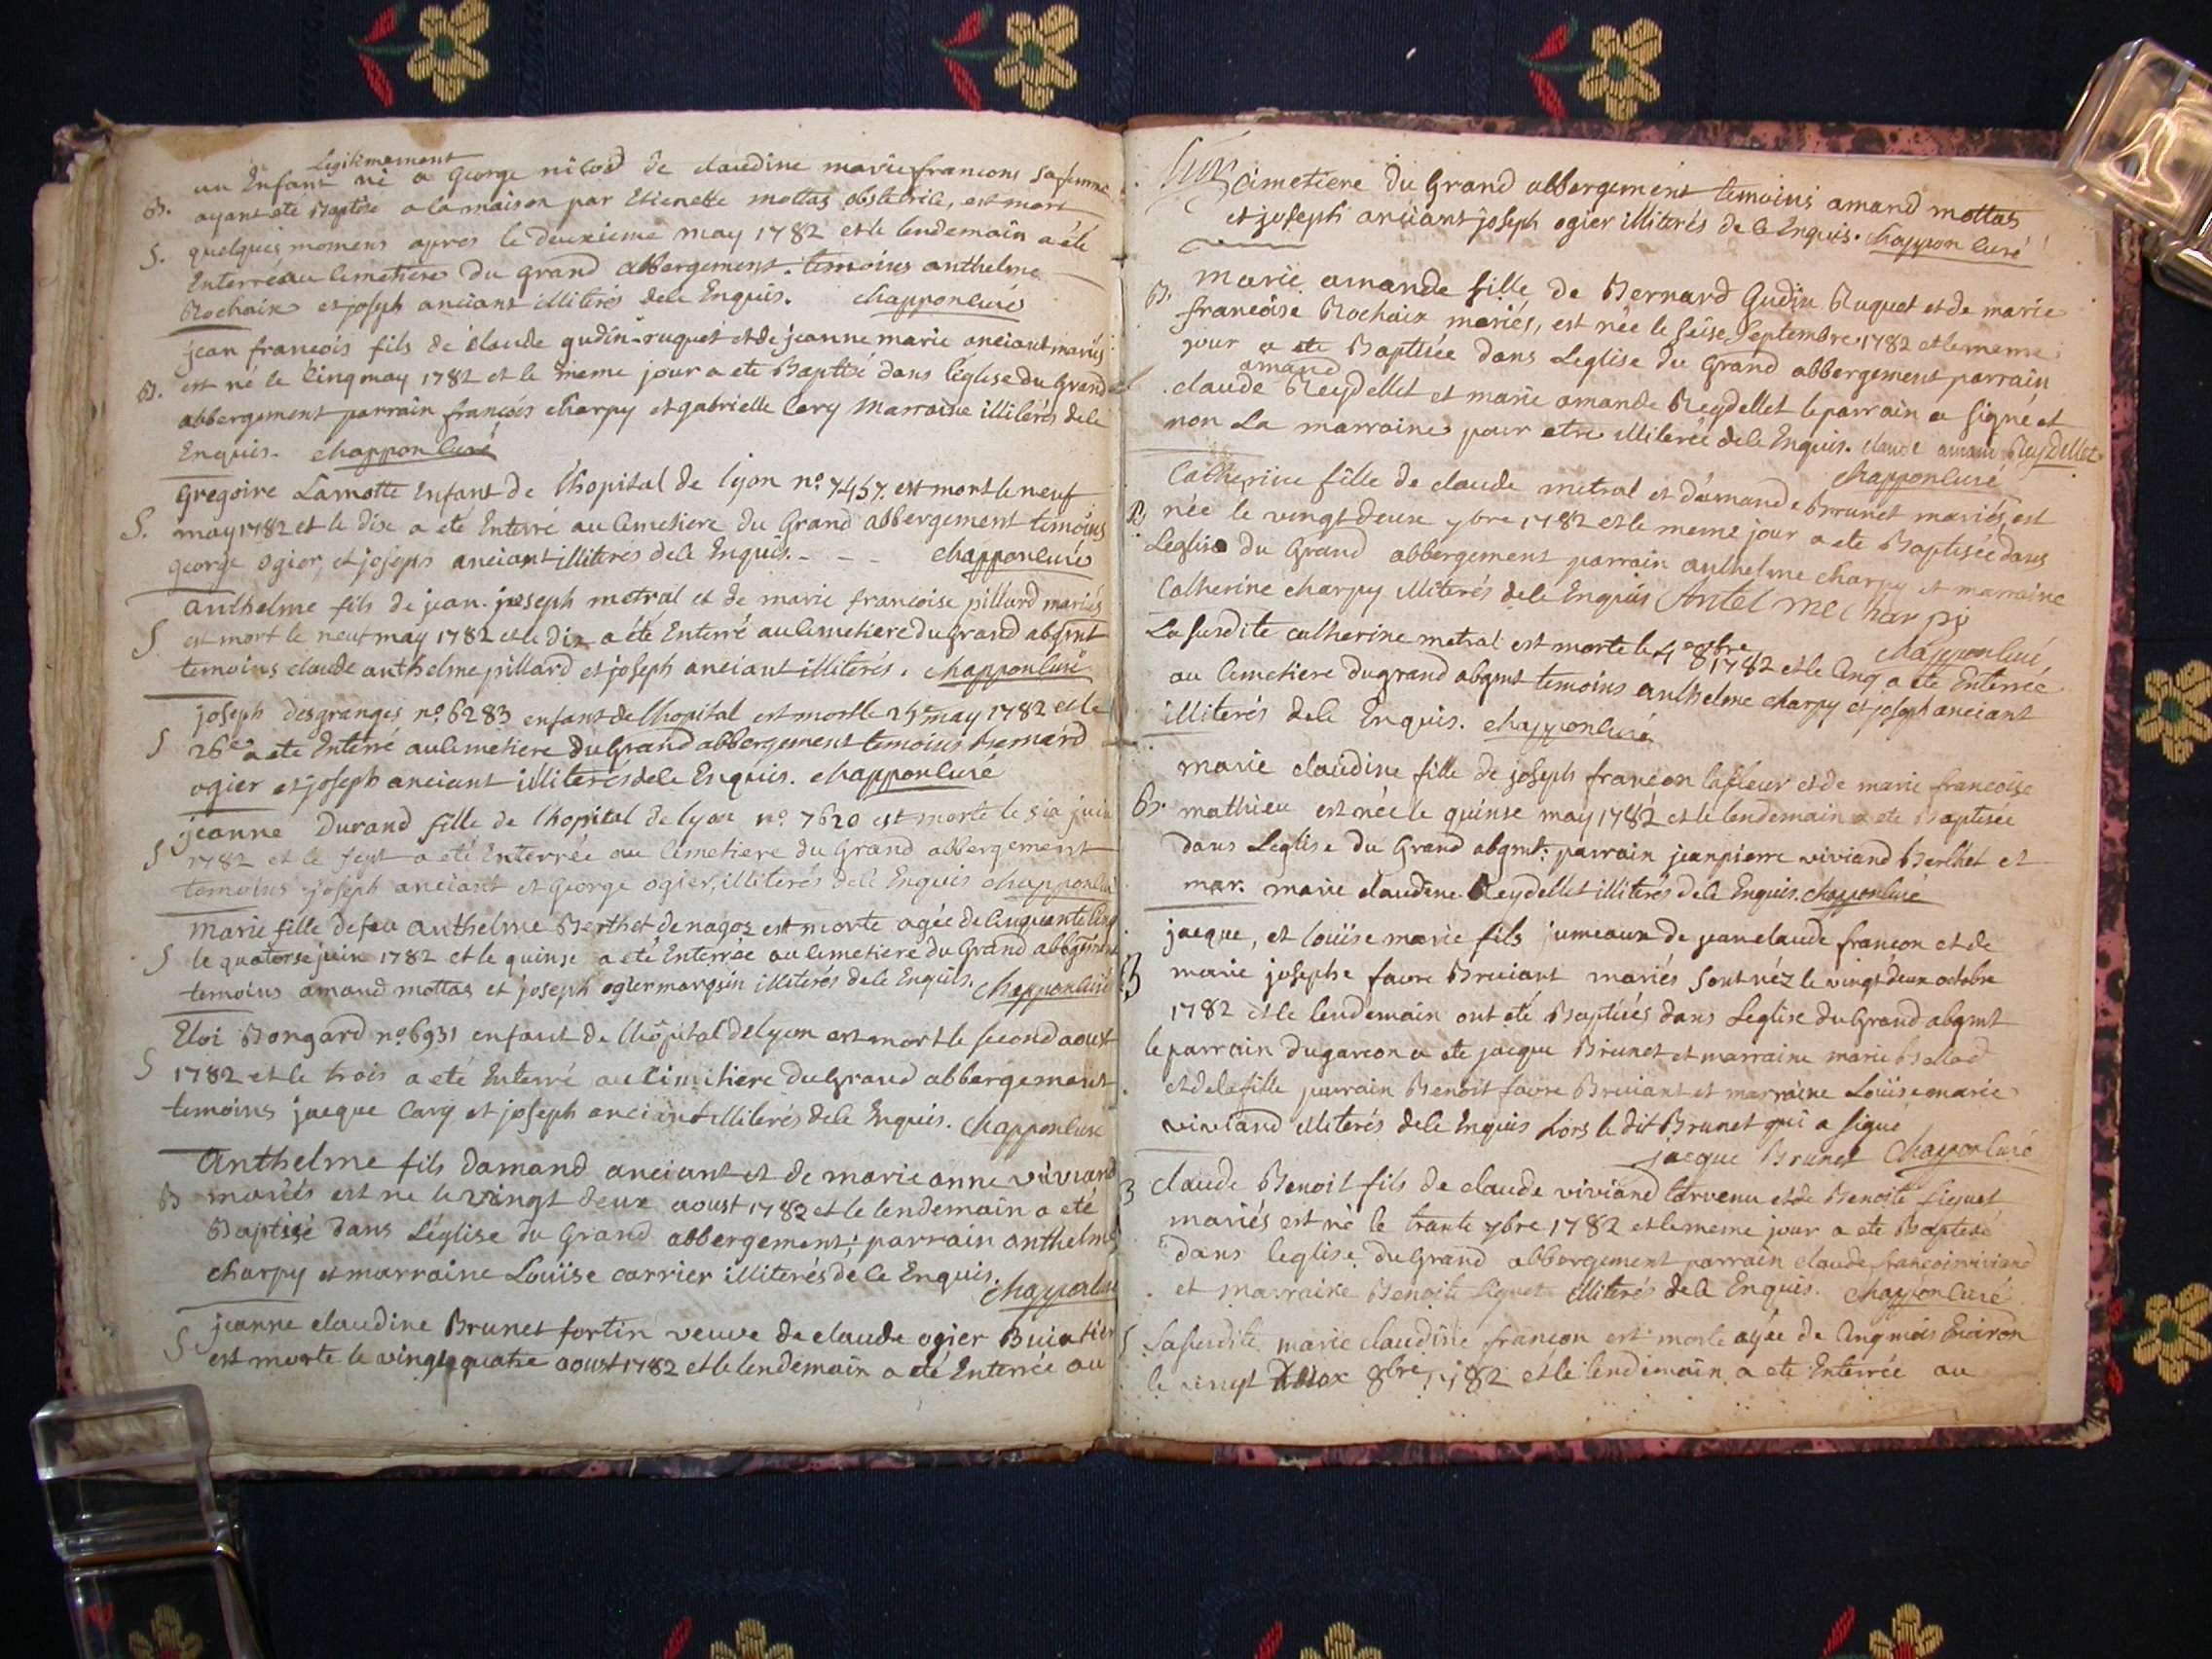 Legitimement
un Enfant né a George nicod de claudine marie francons sa femme
B. ayant eté Baptisé a la maison par Etienette mottas obstetrice, est mort
S. quelques momens apres le deuxieme may 1782 et le lendemain a été
Enterré au Cimetiere du grand abbergement. temoins anthelme
Rochaix et joseph anciant illiterés de le Enquis. Chappon Curé
jean francois fils de claude gudin-ruquet et de jeanne marie anciant mariés
B. est né le Cinq may 1782 et le meme jour a ete Baptisé dans l'église du Grand
abbergement parrain francois charpy et gabrielle Cary Marraine illiterés de le
Enquis. chappon Curé
Gregoire Lamotte Enfant de l'hopital de lyon n.o 7457. est mort le neuf
S. may 1782 et le dix a eté Enterré au Cimetiere du Grand abbergement temoins
george ogier, et joseph anciant illiterés de le Enquis. - - - chappon Curé
anthelme fils de jean-joseph metral et de marie francoise pillard mariés
S est mort le neuf may 1782 et le dix a été Enterré au Cimetiere du Grand abgmt
temoins claude anthelme pillard et joseph anciant illiterés. chappon Curé
joseph desgranges n.o 6283 enfant de l'hopital est mort le 25e may 1782 et le
S 26e a ete Enterré au Cimetiere du Grand abbergement temoins bernard
ogier et joseph anciant illiterés de le Enquis. chappon Curé
jeanne Durand fille de l'hopital de lyon n.o 7620 est morte le six juin
S 1782 et le sept a eté Enterrée au Cimetiere du Grand abbergement
temoins joseph anciant et George ogier, illiterés de le Enquis chappon Curé
Marie fille de feu anthelme Berthet de nagoz est morte agée de Cinquante Cinq
S le quatorse juin 1782 et le quinse a eté Enterrée au Cimetiere du Grand abbgment
temoins amand mottas et joseph ogier marquin illiterés de le Enquis. chappon Curé
Eloi Bongard n.o 6931 enfant de l'hôpital de lyon est mort le second aoust
S 1782 et le trois a eté Enterré au Cimitiere du Grand abbergement
temoins jacque Cary et joseph anciant illiterés de le Enquis. Chappon Curé
Anthelme fils damand anciant et de marie anne viviand
B mariés est ne le vingt deux aoust 1782 et le lendemain a eté
Baptisé dans L'église du Grand abbergement; parrain anthelme
charpy et marraine Louïse carrier illiterés de le Enquis. chappon Curé
jeanne claudine Brunet fortin veuve de claude ogier Buiatier
S est morte le vingt quatre aoust 1782 et le lendemain a eté Enterrée au
Cimetiere du Grand abbergement temoins amand mottas
et joseph anciant joseph ogier illiterés de le Enquis. Chappon Curé
Marie amande fille de Bernard Gudin Ruquet et de marie
B. francoise Rochaix mariés, est née le seise Septembre 1782 et le meme
jour a ete Baptisée dans Leglise du Grand abbergement parrain
amand
claude Reydellet et marie amande Reydellet le parrain a signé et
non La marraine pour etre illiterée de le Enquis. claude amand Reydellet
chappon Curé
Catherine fille de claude metral et d'amande Brunet mariés, est
B née le vingt deux 7bre 1782 et le meme jour a ete Baptisée dans
Leglise du Grand abbergement parrain anthelme charpy et marraine
Catherine charpy illiterés de le Enquis Antelme Charpy
chappon Curé
La susdite catherine metral est morte le 4e 8bre 1782 et le Cinq a ete Enterrée
au Cimetiere du grand abgmt temoins anthelme charpy et joseph anciant
illiterés de le Enquis. chappon Curé
marie claudine fille de joseph françon lafleur et de marie francoise
B. mathieu est née le quinse may 1782 et le lendemain a ete Baptisée
dans Leglise du Grand abgmt: parrain jean pierre viviand Berthet et
mar. marie claudine Reydellet illiterés de le Enquis. Chappon Curé
jacque, et louïse marie fils jumeaux de jean claude françon et de
B marie josephe favre Bruiant mariés sont néz le vingt deux octobre
1782 et le lendemain ont eté Baptisés dans Leglise du Grand abgmt
le parrain du garcon a ete jacque Brunet et marraine marie ballad
et de la fille parrain Benoit favre Bruiant et marraine Louïse marie
viviand illiterés de le Enquis hors le dit Brunet qui a signé
jacque Brunet Chappon Curé
B claude Benoit fils de claude viviand torvenu et de Benoite Siguet
mariés est né le trante 7bre 1782 et le meme jour a ete Baptisé
dans leglise du Grand abbergement parrain claude francois viviand
et marraine Benoite Siguet illiterés de le Enquis. chappon Curé
S La susdite marie claudine françon est morte agée de Cinq mois Environ
le vingt 8bre 1782 et le lendemain a eté Enterrée au